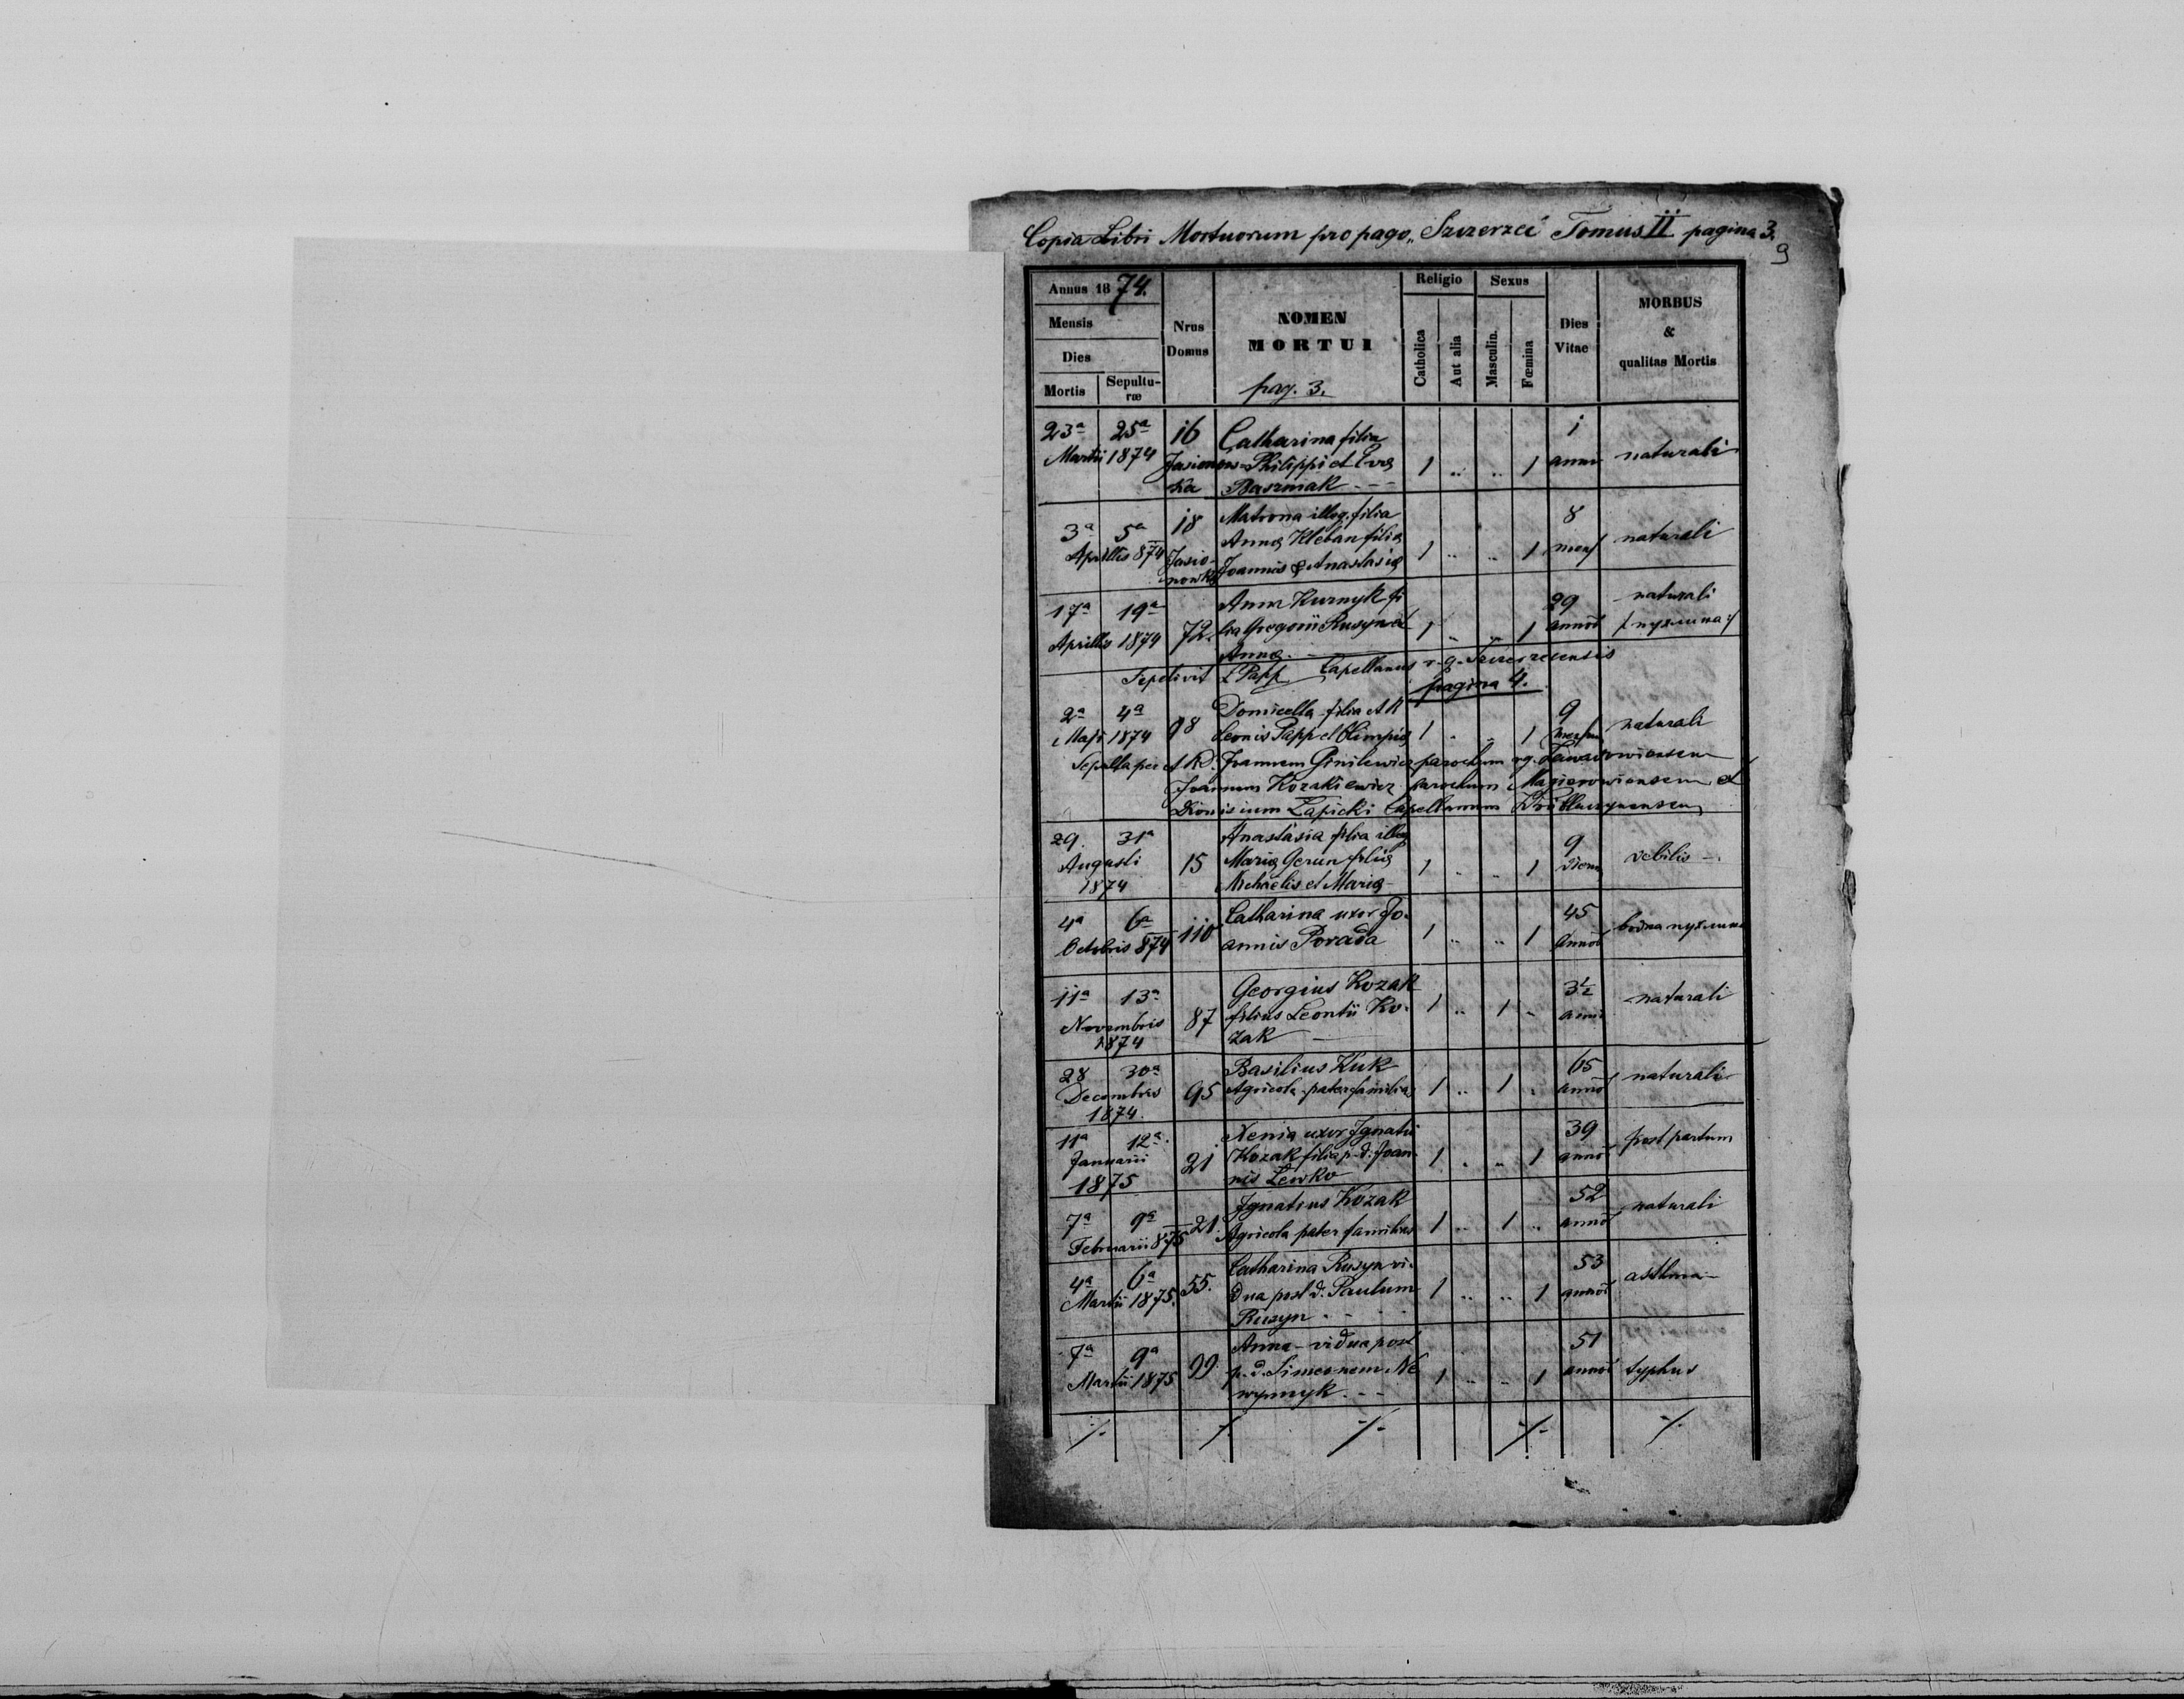 Copia Libri Mortuorum pro pago „Szczerzec" Tomus II pagina 3.
9
Annus 1874.
Mensis
Dies
Mortis
Sepultu-
ræ
Nrus
Domus
NOMEN
MORTUI
pag. 3.
Religio
Catholica
Aut alia
Sexus
Masculin.
Fœmina
Dies
Vitae
MORBUS
&
qualitas Mortis
23a 25a 16 Catharina filia 1
Martii 1874 Jasionow- Philippi et Eva 1 .. .. 1 anni naturali
ka Baszniak - - -
3a 5a 18 Matrona illeg. filia 8
Aprillis 874 Jasio- Anna Kleban filia 1 .. .. 1 mens naturali
nowka Joannis & Anastasia
17a 19a Anna Kurnyk fi 29 naturali
Aprillis 1874 72. lia Gregorii Rusyn et 1 .. .. 1 annor /пухлина/
Anna.
Sepelivit L Papp Capellanus r. g. Szczerzecensis
pagina 4.
2a 4a Domicella filia A R 9
Maji 1874 98 Leonis Papp et Olimpia 1 .. .. 1 mensium naturali
Sepulta per A R. Joannem Ginilewicz parochum r.g.
Joannem Kozakiewicz parochum Magierowiensem et
Dionisium Lapicki Capellanum
29. 31a Anastasia filia illeg 9
Augusti 15 Maria Gerun filia 1 .. .. 1 dierum debilis -
1874 Michaelis et Maria -
4a 6a 110 Catharina uxor Jo- 45
Octobris 874 annis Porada 1 .. .. 1 annor водна пухлина
11a 13a Georgius Kozak 3½
Novembris 87 filius Leontii Ko- 1 .. 1 .. anni naturali
1874 zak
28 30a Basilius Kuk 65
Decembris 95 Agricola pater familias 1 .. 1 .. annor naturali
1874
11a 12a. Xenia uxor Ignatii 39
Januarii 21 Kozak filia p. d. Joan- 1 .. .. 1 annor post partum
1875 nis Lewko
7a 9a 21. Ignatius Kozak 52
Februarii 875 Agricola pater familias 1 .. 1 .. annor naturali
4a 6a 55. Catharina Rusyn vi- 53
Martii 1875. dua post d. Paulum 1 .. .. 1 annor asthma -
Rusyn - -
7a 9a 99. Anna - vidua post 51
Martii 1875 p. d. Simeonem Ne 1 .. .. 1 annor typhus
wynnyk. - -
./. ./. ./. ./. ./.